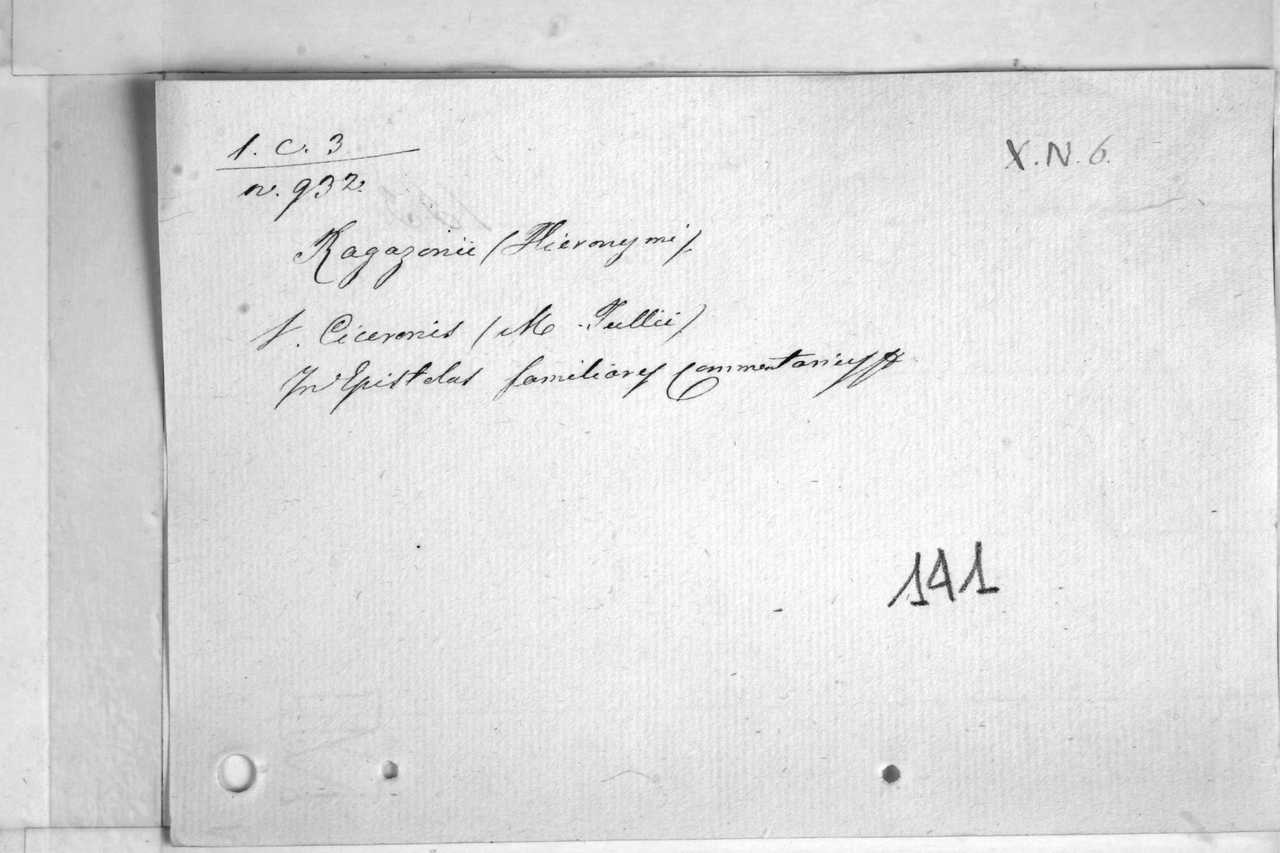 1. C. 3
n. 932.
X. N. 6.
Ragazonii (Hieronymi)
V. Ciceronis (M. Tullii)
In Epistolas familiares Commentarius
141